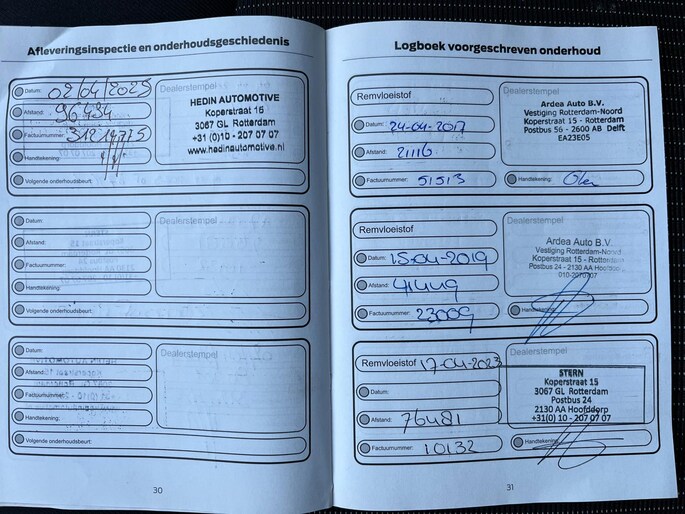 Afleveringsinspectie en onderhoudsgeschiedenis
Datum: 02/04/2025
Afstand: 96434
Factuurnummer:
Handtekening:
Volgende onderhoudsbeurt:
Dealerstempel
HEDIN AUTOMOTIVE
Koperstraat 15
3067 GL Rotterdam
+31 (0)10 - 207 07 07
www.hedinautomotive.nl
Datum:
Afstand:
Factuurnummer:
Handtekening:
Volgende onderhoudsbeurt:
Dealerstempel
Datum:
Afstand:
Factuurnummer:
Handtekening:
Volgende onderhoudsbeurt:
Dealerstempel
30
Logboek voorgeschreven onderhoud
Remvloeistof
Datum: 24-04-2017
Afstand: 21116
Factuurnummer: 51513
Dealerstempel
Ardea Auto B.V.
Vestiging Rotterdam-Noord
Koperstraat 15 - Rotterdam
Postbus 56 - 2600 AB Delft
EA23E05
Handtekening:
Remvloeistof
Datum: 15-04-2019
Afstand: 41449
Factuurnummer: 23009
Dealerstempel
Ardea Auto B.V.
Vestiging Rotterdam-Noord
Koperstraat 15 - Rotterdam
Postbus 24 - 2130 AA Hoofddorp
010-2070707
Handtekening:
Remvloeistof 17-04-2023
Datum:
Afstand: 76481
Factuurnummer: 10132
Dealerstempel
STERN
Koperstraat 15
3067 GL Rotterdam
Postbus 24
2130 AA Hoofddorp
+31(0) 10 - 207 07 07
Handtekening:
31